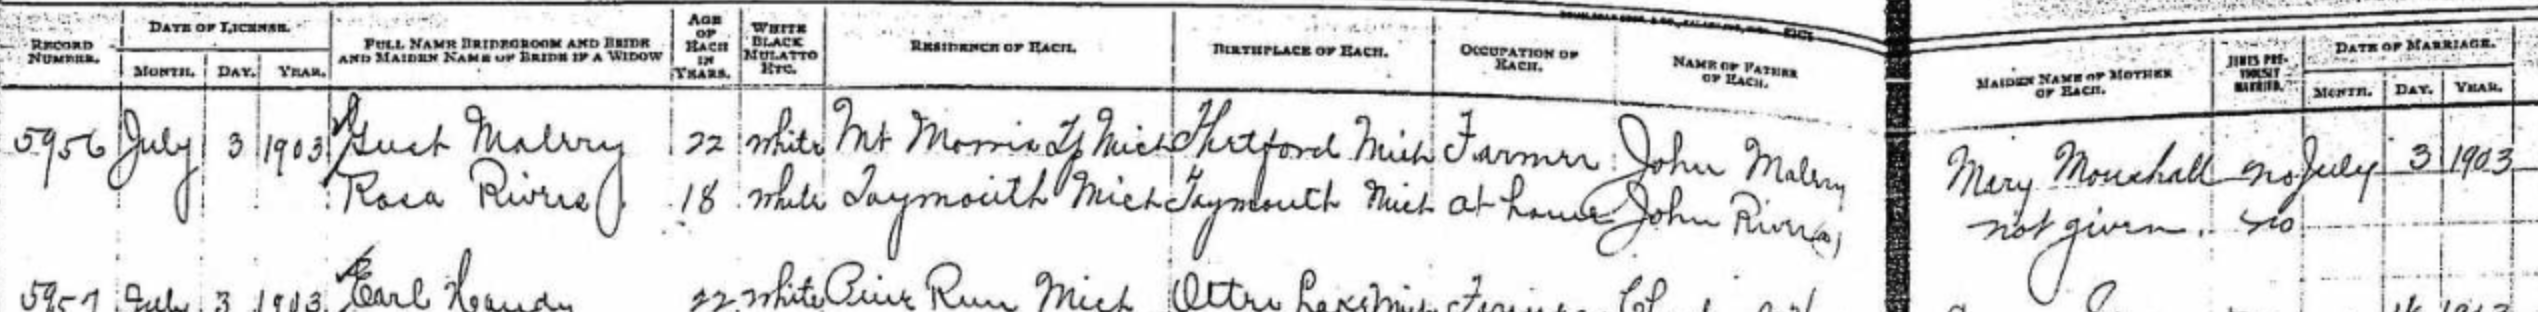 RECORD NUMBER. DATE OF LICENSE. MONTH. DAY. YEAR. FULL NAME BRIDEGROOM AND BRIDE AND MAIDEN NAME OF BRIDE IF A WIDOW AGE OF EACH IN YEARS. WHITE BLACK MULATTO ETC. RESIDENCE OF EACH. BIRTHPLACE OF EACH. OCCUPATION OF EACH. NAME OF FATHER OF EACH. MAIDEN NAME OF MOTHER OF EACH. TIMES PREVIOUSLY MARRIED. DATE OF MARRIAGE. MONTH. DAY. YEAR.
5956 July 3 1903 Gust Malery 22 white Mt Morris Tp Mich Thetford Mich Farmer John Malery Mary Moushall no July 3 1903
Rosa Rivers 18 white Taymouth Mich Taymouth Mich at home John Rivers not given. no
5957 July 3 1903 Earl 22 white Run Mich Otter Lake Mich